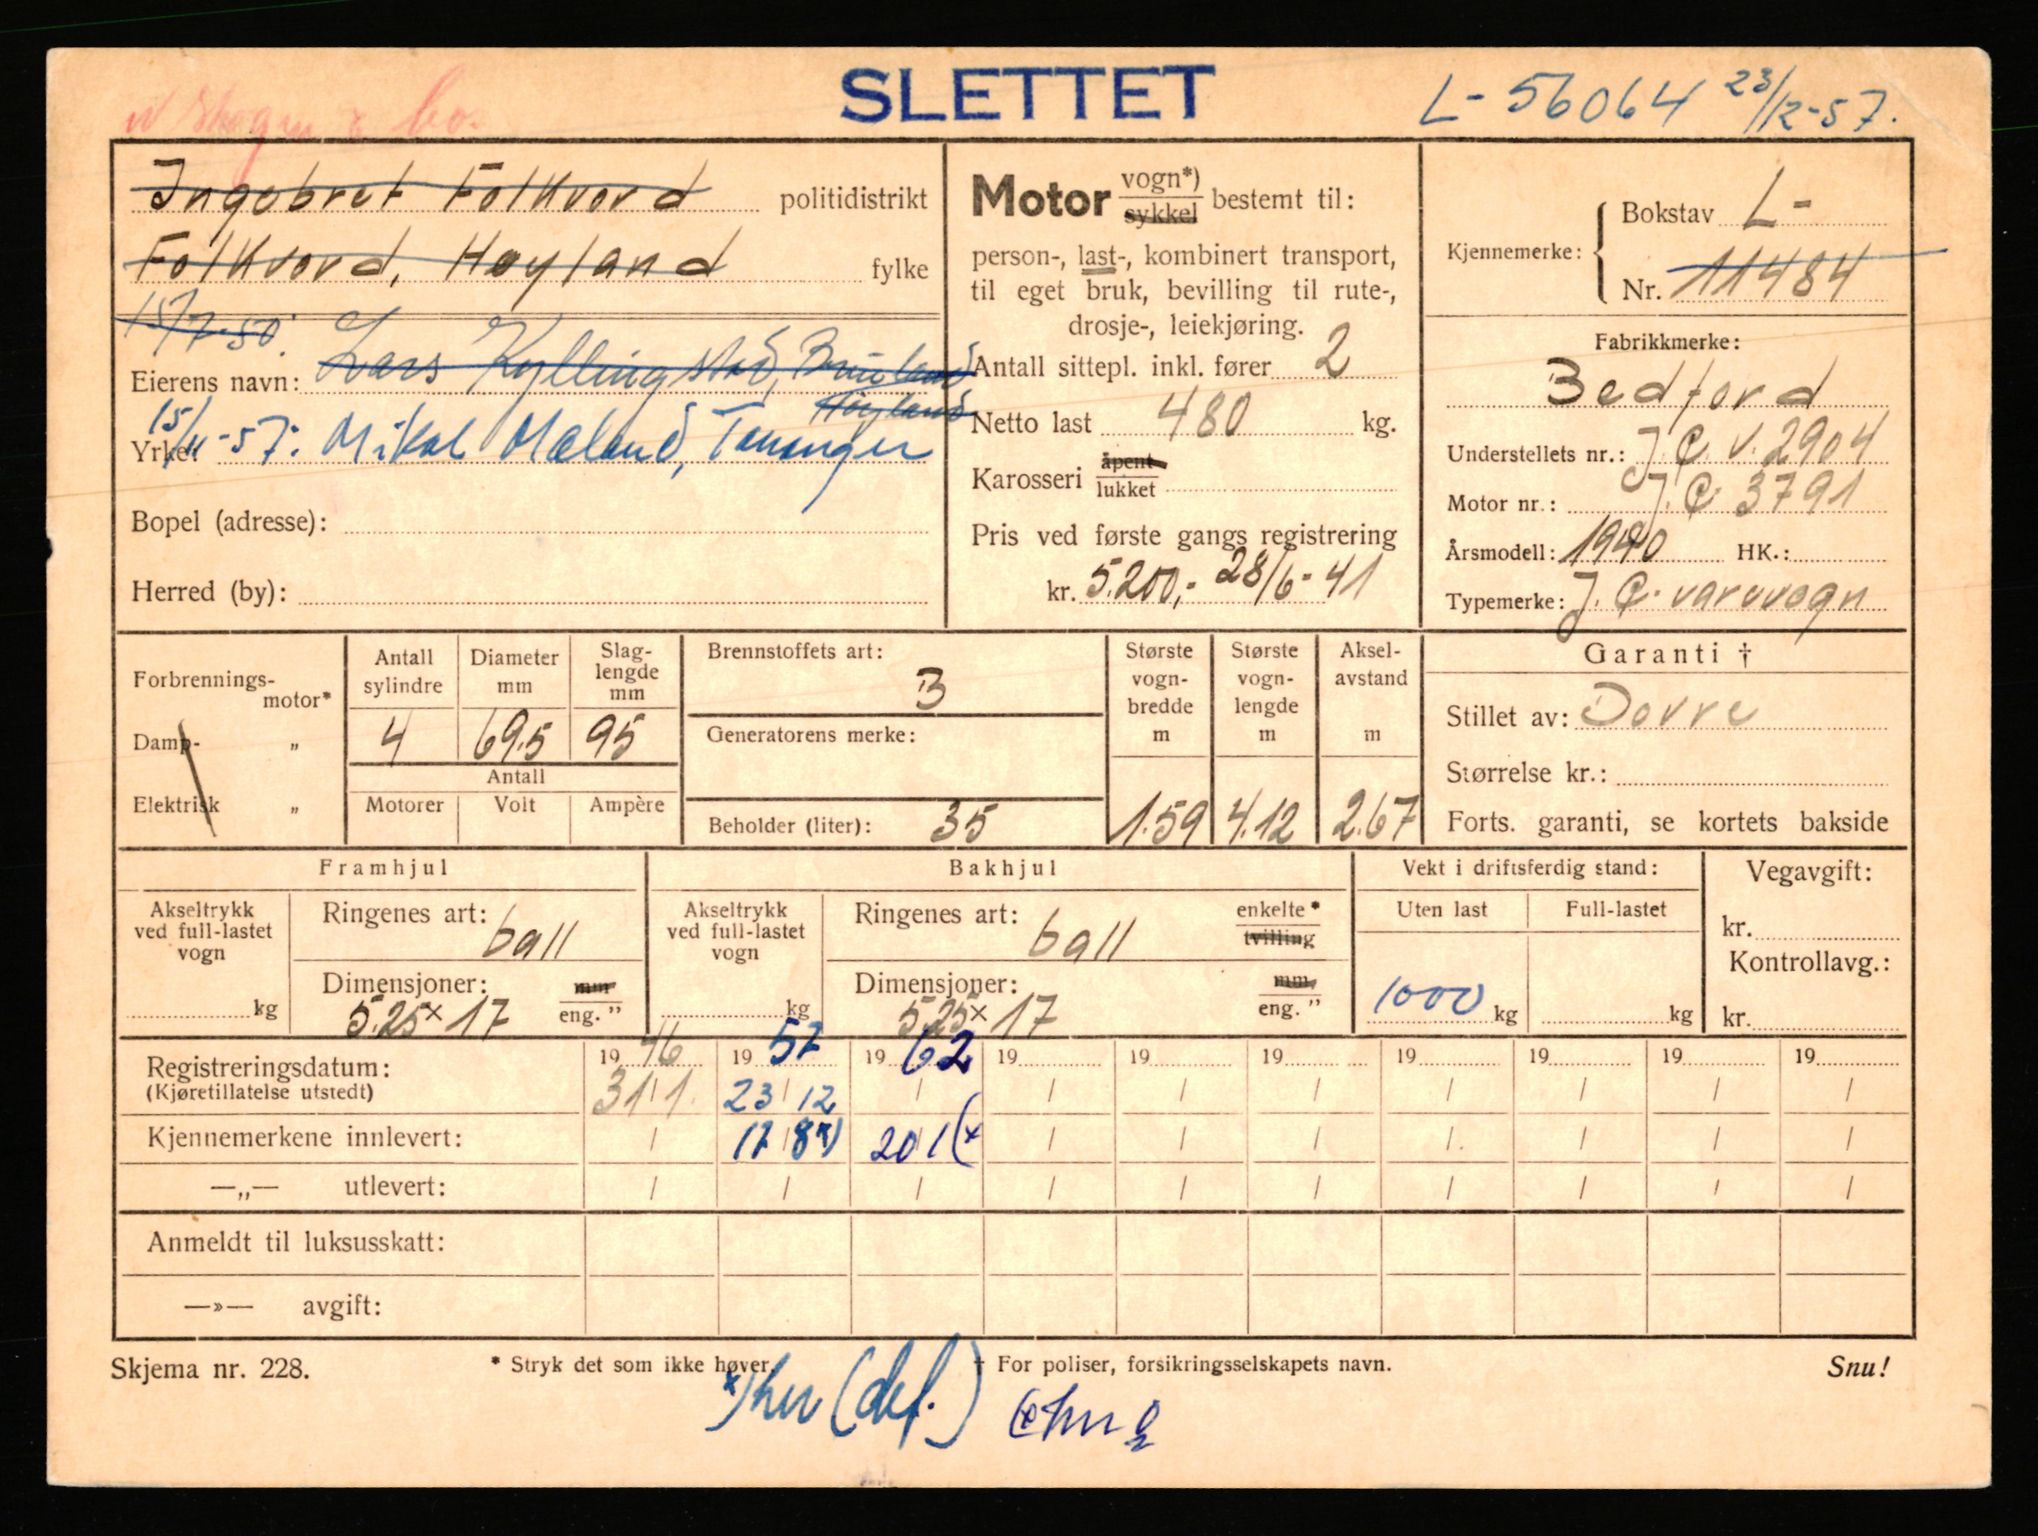 SLETTET
L- 56064 23/12-57.
Ingebret Folkvord politidistrikt
Folkvord, Høyland fylke
15/7-50.
Eierens navn: Lars Kyllingstad, Brueland
Høyland
Yrke: 15/11-57: Mikal Mæland, Tananger
Bopel (adresse):
Herred (by):
Motor vogn*) sykkel bestemt til:
person-, last-, kombinert transport,
til eget bruk, bevilling til rute-,
drosje-, leiekjøring.
Antall sittepl. inkl. fører 2
Netto last 480 kg.
Karosseri åpent lukket
Pris ved første gangs registrering
kr. 5.200,- 28/6-41
Kjennemerke: Bokstav L-
Nr. 11484
Fabrikkmerke:
Bedford
Understellets nr.: J.C.V. 2904
Motor nr.: J.C 3791
Årsmodell: 1940 HK.:
Typemerke: J.C. varevogn
Forbrennings-
motor*
Damp- „
Elektrisk „
Antall sylindre
4
Diameter mm
69.5
Slag-
lengde
mm
95
Antall
Motorer Volt Ampère
Brennstoffets art:
B
Generatorens merke:
Beholder (liter): 35
Største
vogn-
bredde
m
1.59
Største
vogn-
lengde
m
4.12
Aksel-
avstand
m
2.67
Garanti †
Stillet av: Dovre
Størrelse kr.:
Forts. garanti, se kortets bakside
Framhjul
Akseltrykk
ved full-lastet
vogn
kg
Ringenes art: ball
Dimensjoner: mm
5.25 x 17 eng. ”
Bakhjul
Akseltrykk
ved full-lastet
vogn
kg
Ringenes art: ball enkelte* tvilling
Dimensjoner: mm.
5.25 x 17 eng. ”
Vekt i driftsferdig stand:
Uten last Full-lastet
1000 kg kg
Vegavgift:
kr.
Kontrollavg.:
kr.
Registreringsdatum: 19 46 19 57 19 62 19 19 19 19 19 19 19
(Kjøretillatelse utstedt) 31/1. 23/12 / / / / / / / /
Kjennemerkene innlevert: / 17/8 *) 20/1 (* / / / / / / /
—„— utlevert: / / / / / / / / / /
Anmeldt til luksusskatt:
—»— avgift:
Skjema nr. 228. * Stryk det som ikke høver. † For poliser, forsikringsselskapets navn. Snu!
*) her (def.)